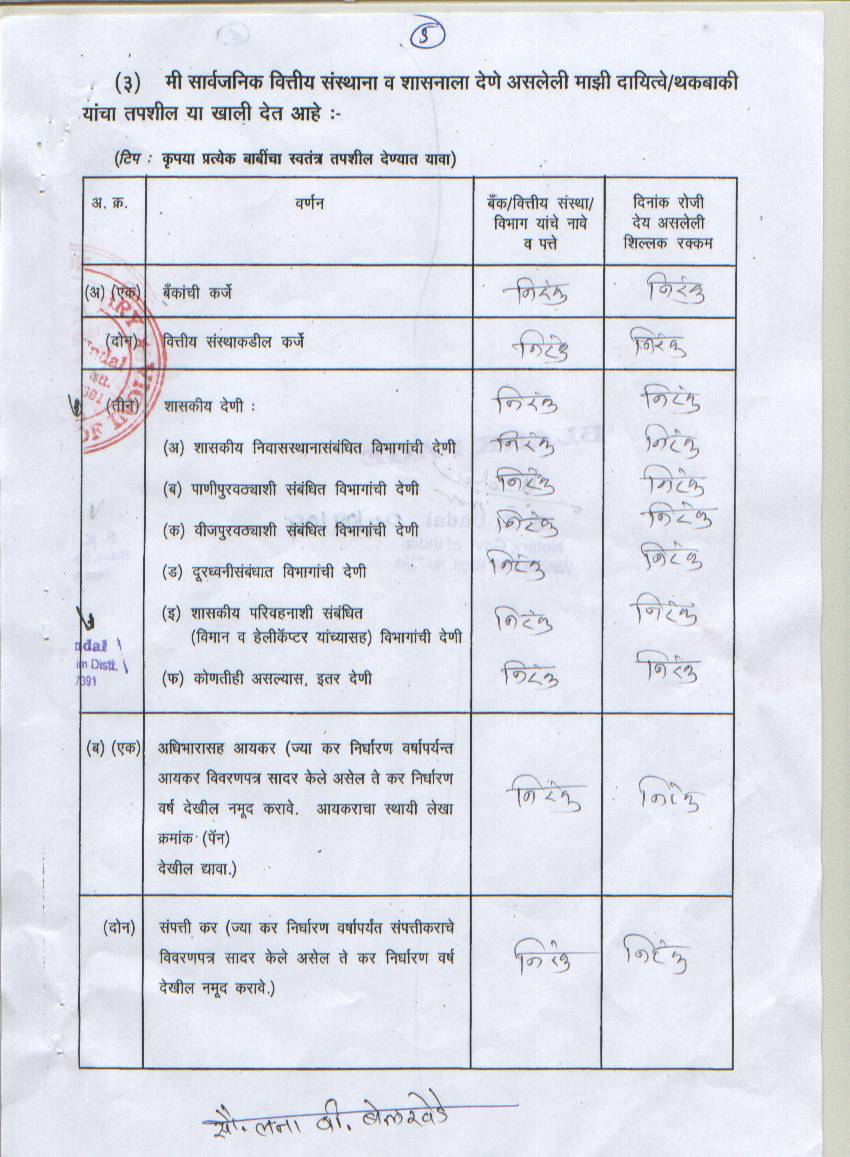 ५
(३) मी सार्वजनिक वित्तीय संस्थाना व शासनाला देणे असलेली माझी दायित्वे/थकबाकी
यांचा तपशील या खाली देत आहे :-
(टिप : कृपया प्रत्येक बाबींचा स्वतंत्र तपशील देण्यात यावा)
अ. क्र. वर्णन बँक/वित्तीय संस्था/ दिनांक रोजी
विभाग यांचे नावे देय असलेली
व पत्ते शिल्लक रक्कम
(अ) (एक) बँकांची कर्जे निरंकु निरंकु
(दोन) वित्तीय संस्थाकडील कर्जे निरंकु निरंकु
(तीन) शासकीय देणी : निरंकु निरंकु
(अ) शासकीय निवासस्थानासंबंधित विभागांची देणी निरंकु निरंकु
(ब) पाणीपुरवठ्याशी संबंधित विभागांची देणी निरंकु निरंकु
(क) वीजपुरवठ्याशी संबंधित विभागांची देणी निरंकु निरंकु
(ड) दूरध्वनीसंबंधात विभागांची देणी निरंकु निरंकु
(इ) शासकीय परिवहनाशी संबंधित निरंकु निरंकु
(विमान व हेलीकॅप्टर यांच्यासह) विभागांची देणी
ndal
im Distt.
7391
(फ) कोणतीही असल्यास, इतर देणी निरंकु निरंकु
(ब) (एक) अधिभारासह आयकर (ज्या कर निर्धारण वर्षापर्यन्त
आयकर विवरणपत्र सादर केले असेल ते कर निर्धारण
वर्ष देखील नमूद करावे. आयकराचा स्थायी लेखा निरंकु निरंकु
क्रमांक (पॅन)
देखील द्यावा.)
(दोन) संपत्ती कर (ज्या कर निर्धारण वर्षापर्यंत संपत्तीकराचे
विवरणपत्र सादर केले असेल ते कर निर्धारण वर्ष निरंकु निरंकु
देखील नमूद करावे.)
सौ. लना वी. बेलखेडे